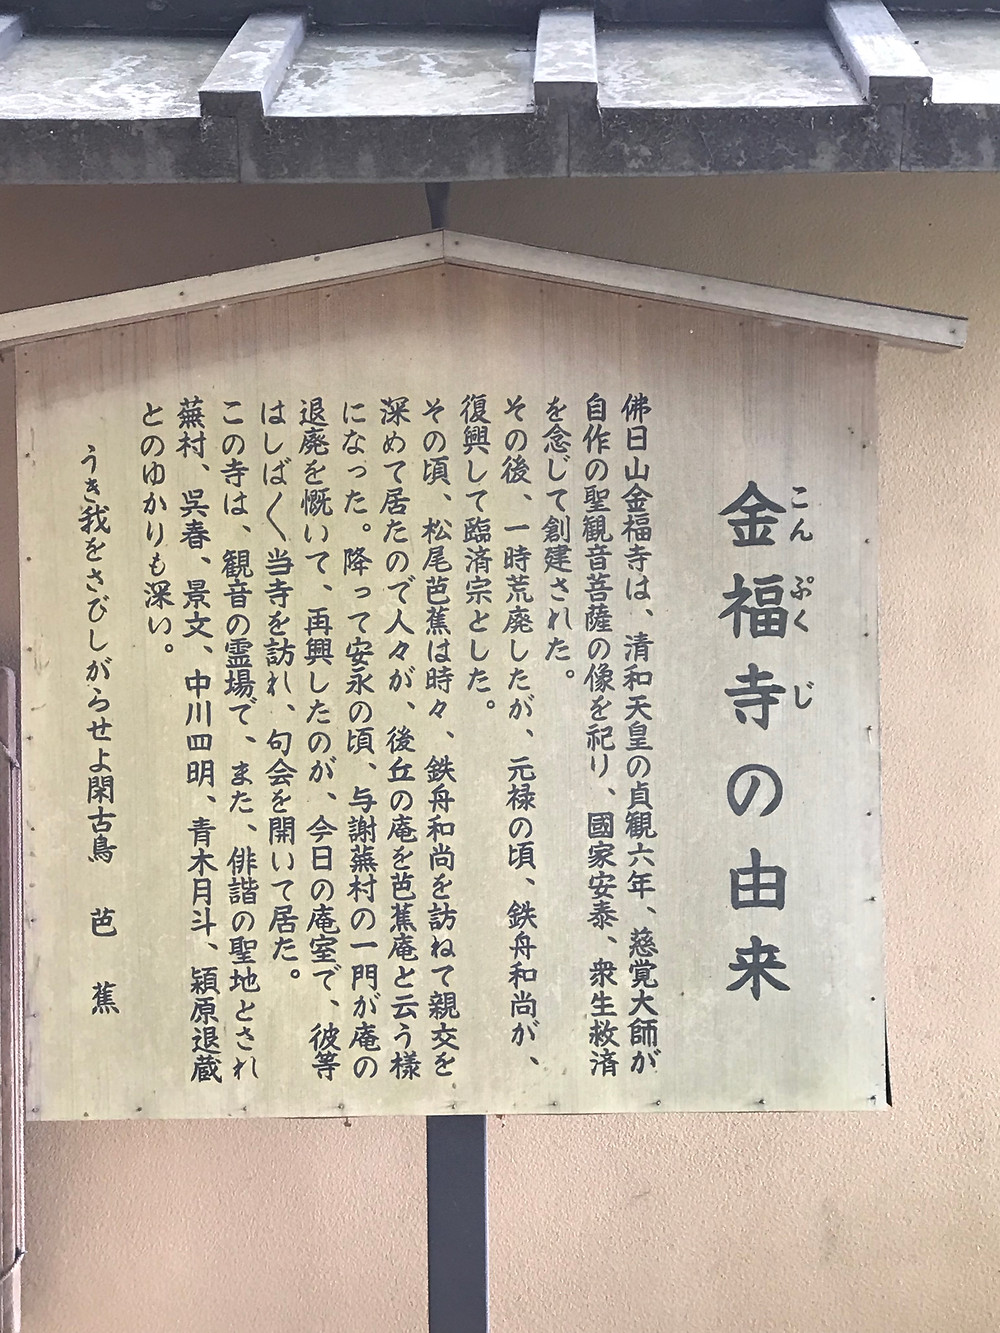 金福寺の由来
こんぷくじ
佛日山金福寺は、清和天皇の貞観六年、慈覚大師が
自作の聖観音菩薩の像を祀り、國家安泰、衆生救済
を念じて創建された。
その後、一時荒廃したが、元禄の頃、鉄舟和尚が、
復興して臨済宗とした。
その頃、松尾芭蕉は時々、鉄舟和尚を訪ねて親交を
深めて居たので人々が、後丘の庵を芭蕉庵と云う様
になった。降って安永の頃、与謝蕪村の一門が庵の
退廃を慨いて、再興したのが、今日の庵室で、彼等
はしば〱当寺を訪れ、句会を開いて居た。
この寺は、観音の霊場で、また、俳諧の聖地とされ
蕪村、呉春、景文、中川四明、青木月斗、穎原退蔵
とのゆかりも深い。
うき我をさびしがらせよ閑古鳥　芭　蕉